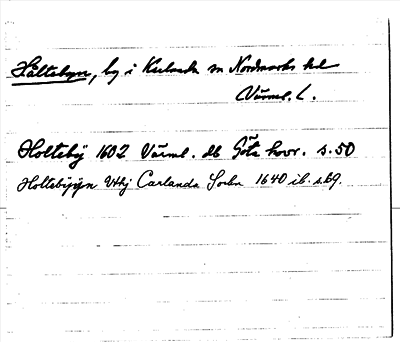 Håltebyn, by i Karlanda sn Nordmarks hd
Värml. l.
Holteby 1602 Värml. db Göta hovr. s. 50
Holtebyyn Carlanda Sochn 1640 ib. s. 69.